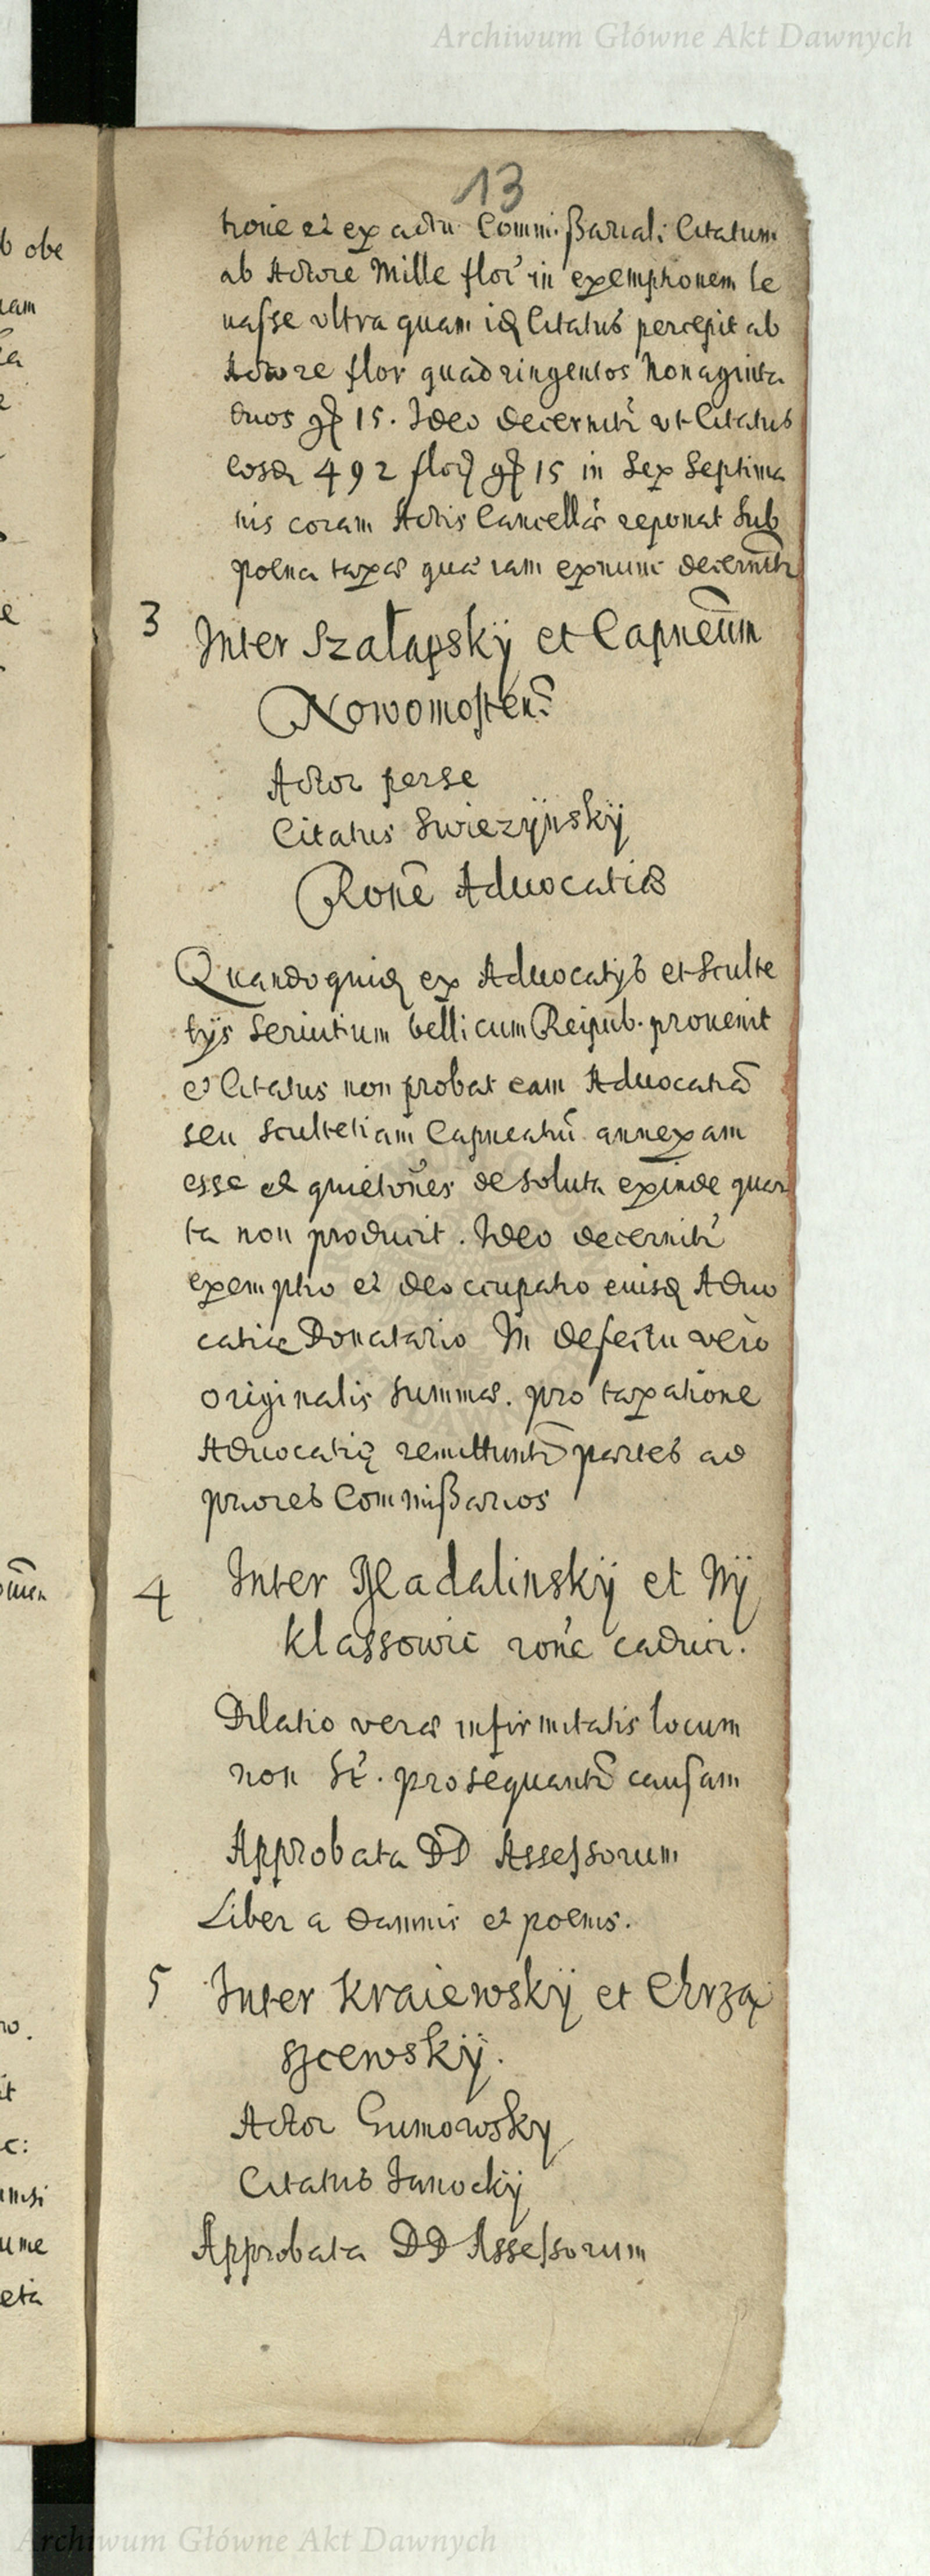 Archiwum Główne Akt Dawnych
13
tione et ex actu Commißariali Citatum
ab Actore Mille flor in exemptionem le
uasse vltra quam id Citatus percepit ab
Actore flor quadringentos Nonaginta
duos gr 15. Ideo decernitr vt Citatus
eosd 492 flor gr 15 in Sex Septima
nis coram Actis Cancellar reponat Sub
poena taxae qua iam exnunc decernitr
3 Inter Szałapsky et Capneum
Nowomosten
Actor perse
Citatus Swiezÿnskÿ
Rone Aduocatiae
Quandoquid ex Aduocatÿs et Sculte
tÿs Seruitium bellicum Reipub. prouenit
et Citatus non probat eam Aduocatia
seu Scultetiam Capneatui annexam
esse et quietones de Soluta exinde quar
ta non producit. Ideo decernitr
exemptio et deoccupatio eiusd Aduo
catiae Donatario In defectu vero
originalis Summae. pro taxatione
Aduocatię remittuntr partes ad
priores Commißarios
4 Inter Madalinskÿ et Mÿ
klassowic rone caduci.
Dilatio verae infirmitatis locum
non . prosequantr causam
Approbata DD Assessorum
Liber a damnis et poenis.
5 Inter Kraiewskÿ et Chrzą
szcewskÿ.
Actor Gumowsky
Citatus Janockÿ
Approbata DD Assessorum
b obe
uam
eta
ume
Archiwum Główne Akt Dawnych